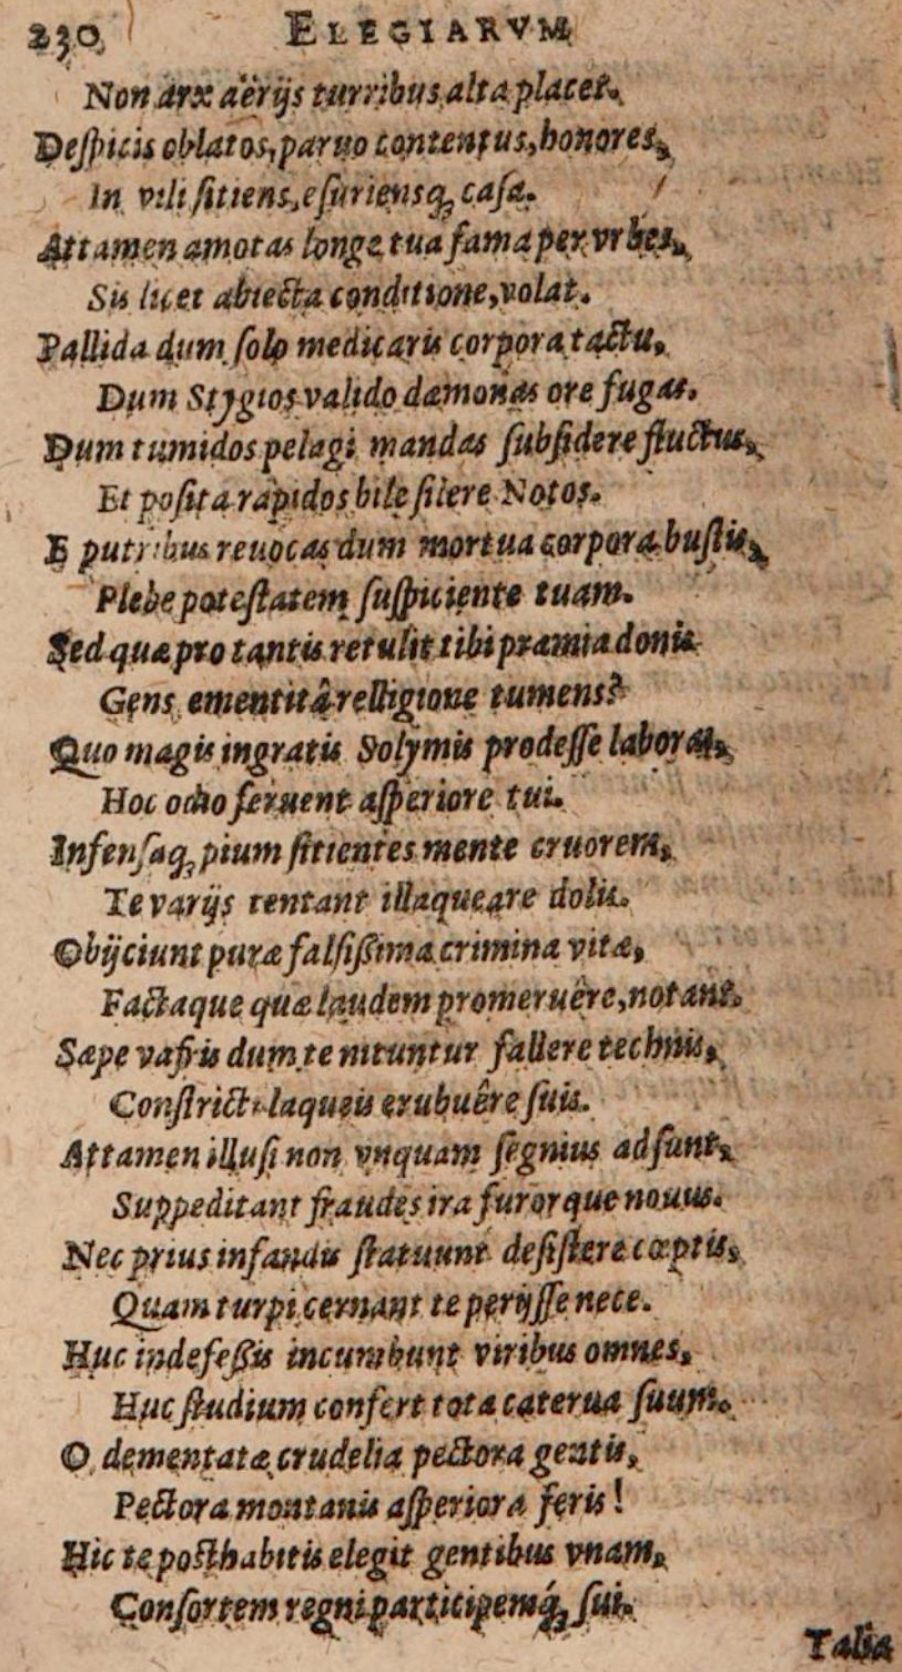 230 ELEGIARVM
Non arx aërijs turribus alta placet.
Deſpicis oblatos, paruo contentus, honores,
In vili ſitiens, eſuriensq́; caſa.
Attamen amotas longe tua fama per vrbes,
Sis licet abiecta conditione, volat.
Pallida dum ſolo medicaris corpora tactu,
Dum Stygios valido dæmonas ore fugas.
Dum tumidos pelagi mandas ſubſidere fluctus,
Et poſita rapidos bile ſilere Notos.
E putribus reuocas dum mortua corpora buſtis,
Plebe poteſtatem ſuſpiciente tuam.
Sed quæ pro tantis retulit tibi præmia donis
Gens ementitâ relligione tumens?
Quo magis ingratis Solymis prodeſſe laboras,
Hoc odio feruent aſperiore tui.
Infenſaq; pium ſitientes mente cruorem,
Te varijs tentant illaqueare dolis.
Obijciunt puræ falſiſsima crimina vitæ,
Factaque quæ laudem promeruêre, notant.
Sæpe vafris dum te nituntur fallere technis,
Conſtricti laqueis erubuêre ſuis.
Attamen illuſi non vnquam ſegnius adſunt,
Suppeditant fraudes ira furorque nouus.
Nec prius infandis ſtatuunt deſiſtere cœptis,
Quam turpi cernant te perijſſe nece.
Huc indefeßis incumbunt viribus omnes,
Huc ſtudium confert tota caterua ſuum.
O dementatæ crudelia pectora gentis,
Pectora montanis aſperiora feris!
Hic te poſthabitis elegit gentibus vnam,
Conſortem regni participemq́; ſui.
Talia